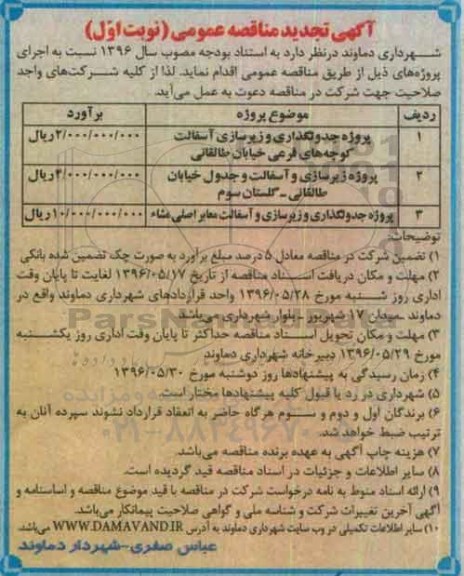 آگهی تجدید مناقصه عمومی (نوبت اوّل)
شهرداری دماوند درنظر دارد به استناد بودجه مصوب سال ۱۳۹۶ نسبت به اجرای
پروژه‌های ذیل از طریق مناقصه عمومی اقدام نماید. لذا از کلیه شرکت‌های واجد
صلاحیت جهت شرکت در مناقصه دعوت به عمل می‌آید.
ردیف موضوع پروژه برآورد
۱ پروژه جدولگذاری و زیرسازی آسفالت ۲/۰۰۰/۰۰۰/۰۰۰ ریال
کوچه‌های فرعی خیابان طالقانی
۲ پروژه زیرسازی و آسفالت و جدول خیابان ۴/۰۰۰/۰۰۰/۰۰۰ ریال
طالقانی - گلستان سوم
۳ پروژه جدولگذاری و زیرسازی و آسفالت معابر اصلی مشاء ۱۰/۰۰۰/۰۰۰/۰۰۰ ریال
توضیحات:
۱) تضمین شرکت در مناقصه معادل ۵ درصد مبلغ برآورد به صورت چک تضمین شده بانکی
۲) مهلت و مکان دریافت اسناد مناقصه از تاریخ ۱۳۹۶/۰۵/۱۷ لغایت تا پایان وقت
اداری روز شنبه مورخ ۱۳۹۶/۰۵/۲۸ واحد قراردادهای شهرداری دماوند واقع در
دماوند ـ میدان ۱۷ شهریور ـ بلوار شهرداری می‌باشد.
۳) مهلت و مکان تحویل اسناد مناقصه حداکثر تا پایان وقت اداری روز یکشنبه
مورخ ۱۳۹۶/۰۵/۲۹ دبیرخانه شهرداری دماوند
۴) زمان رسیدگی به پیشنهادها روز دوشنبه مورخ ۱۳۹۶/۰۵/۳۰
۵) شهرداری در رد یا قبول کلیه پیشنهادها مختار است.
۶) برندگان اول و دوم و سوم هرگاه حاضر به انعقاد قرارداد نشوند سپرده آنان به
ترتیب ضبط خواهد شد.
۷) هزینه چاپ آگهی به عهده برنده مناقصه می‌باشد.
۸) سایر اطلاعات و جزئیات در اسناد مناقصه قید گردیده است.
۹) ارائه اسناد منوط به نامه درخواست شرکت در مناقصه با قید موضوع مناقصه و اساسنامه و
آگهی آخرین تغییرات شرکت و شناسه ملی و گواهی صلاحیت پیمانکار می‌باشد.
۱۰) سایر اطلاعات تکمیلی در وب سایت شهرداری دماوند به آدرس WWW.DAMAVAND.IR می‌باشد.
عباس صفری-شهردار دماوند